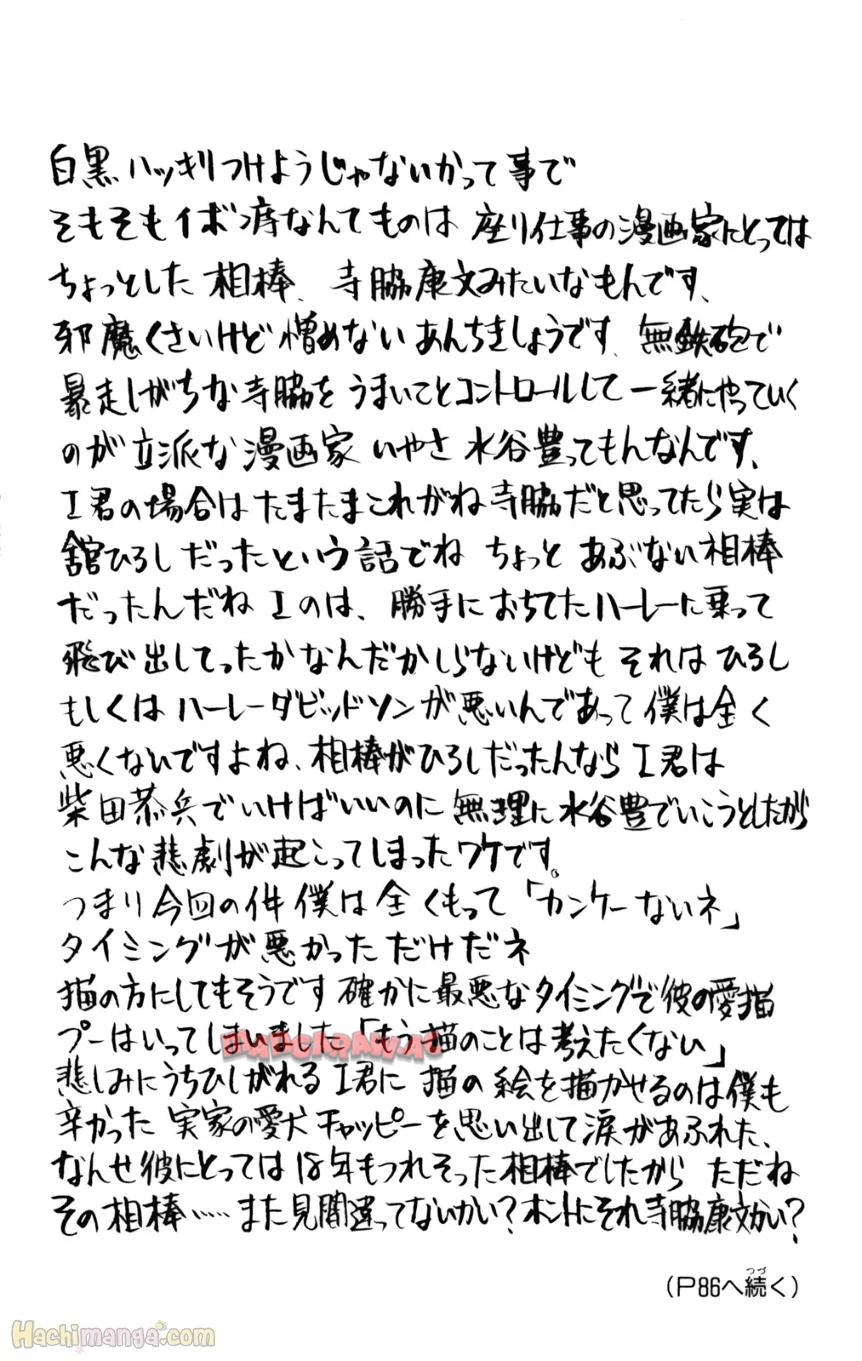 白黒ハッキリつけようじゃないかって事で
そもそもイボ痔なんてものは 座り仕事の漫画家にとっては
ちょっとした相棒、寺脇康文みたいなもんです、
邪魔くさいけど憎めないあんちきしょうです、無鉄砲で
暴走しがちな寺脇をうまいことコントロールして一緒にやっていく
のが立派な漫画家 いやさ 水谷豊ってもんなんです、
I君の場合はたまたまこれがね寺脇だと思ってたら実は
舘ひろしだったという話でね ちょっと あぶない相棒
だったんだね Iのは、勝手におちてたハーレーに乗って
飛び出してったかなんだかしらないけども それはひろし
もしくはハーレーダビッドソンが悪いんであって僕は全く
悪くないですよね、相棒がひろしだったんならI君は
柴田恭兵でいけばいいのに無理に水谷豊でいこうとしたから
こんな悲劇が起こってしまったワケです。
つまり今回の件 僕は全くもって「カンケーないネ」
タイミングが悪かっただけだネ
猫の方にしてもそうです 確かに最悪なタイミングで彼の愛猫
プーはいってしまいました「もう猫のことは考えたくない」
悲しみにうちひしがれるI君に 猫の絵を描かせるのは僕も
辛かった 実家の愛犬チャッピーを思い出して涙があふれた、
なんせ彼にとっては18年もつれそった相棒でしたから ただね
その相棒……また見間違ってないかい?ホントにそれ寺脇康文かい?
(P86へ続く)
つづ
Hachimanga.com